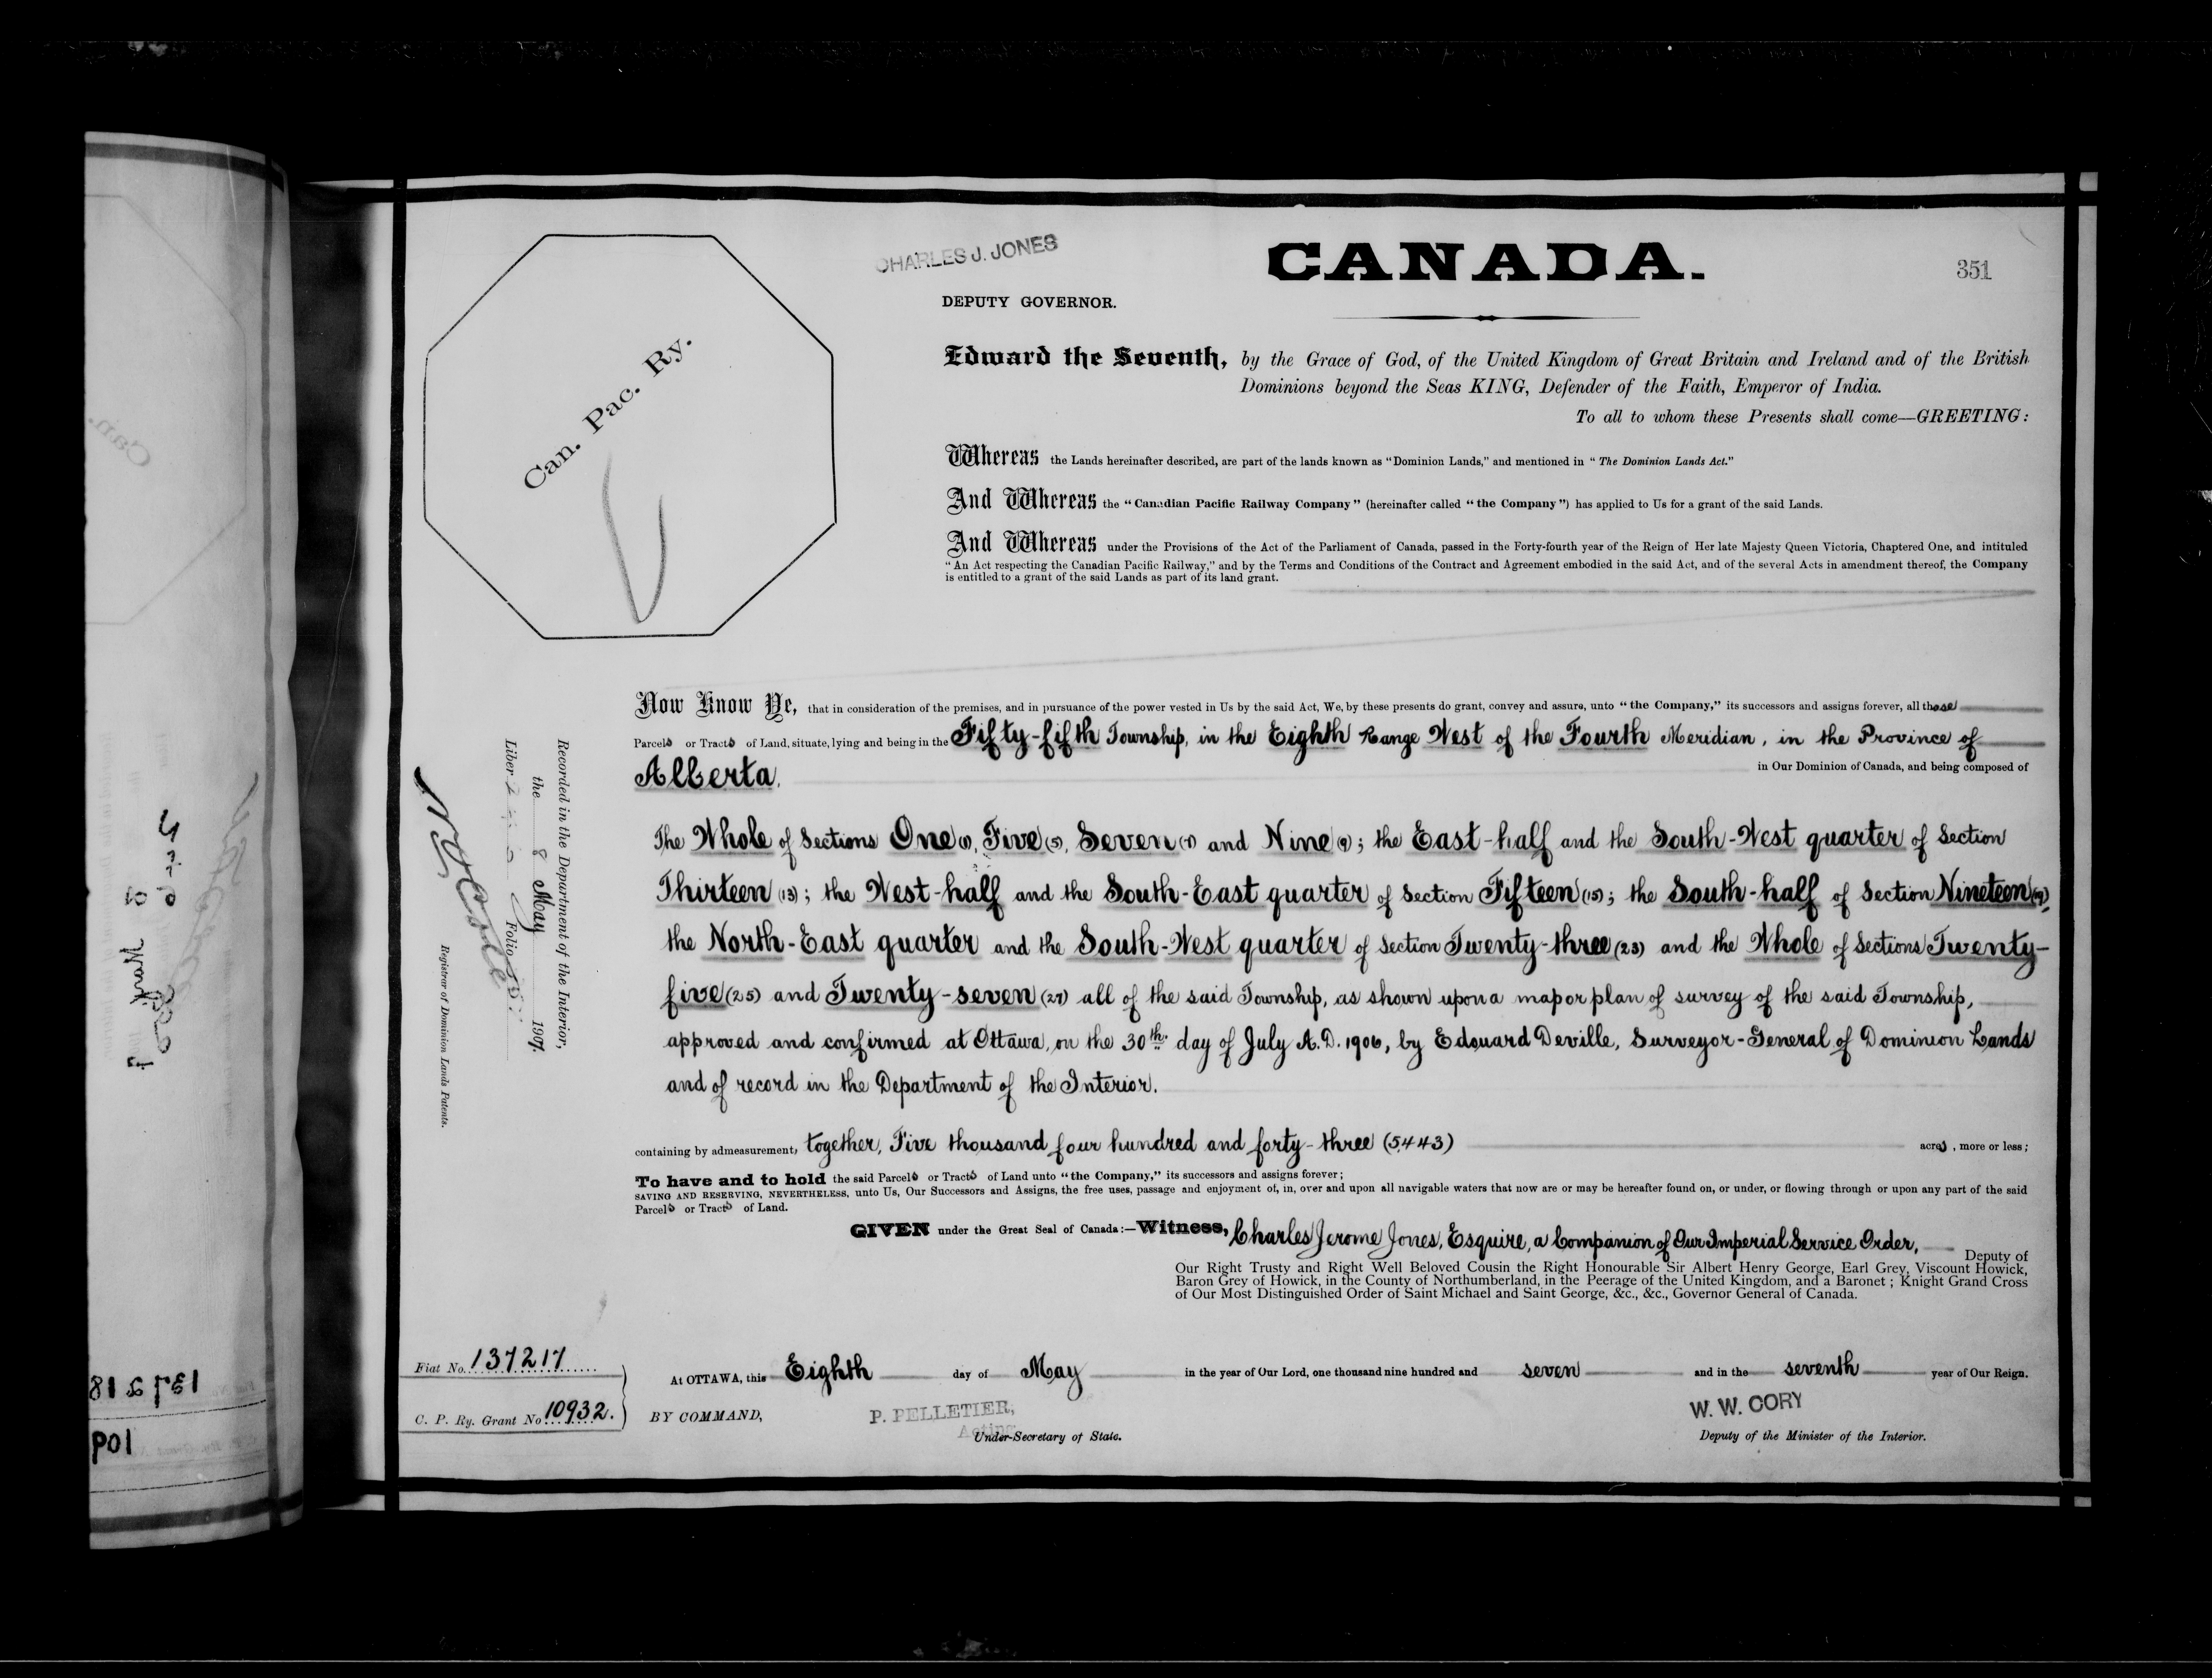 CHARLES J. JONES
CANADA.
351
DEPUTY GOVERNOR.
Can. Pac. Ry.
Edward the Seventh, by the Grace of God, of the United Kingdom of Great Britain and Ireland and of the British
Dominions beyond the Seas KING, Defender of the Faith, Emperor of India.
To all to whom these Presents shall come—GREETING:
Whereas the Lands hereinafter described, are part of the lands known as "Dominion Lands," and mentioned in "The Dominion Lands Act."
And Whereas the "Canadian Pacific Railway Company" (hereinafter called "the Company") has applied to Us for a grant of the said Lands.
And Whereas under the Provisions of the Act of the Parliament of Canada, passed in the Forty-fourth year of the Reign of Her late Majesty Queen Victoria, Chaptered One, and intituled
"An Act respecting the Canadian Pacific Railway," and by the Terms and Conditions of the Contract and Agreement embodied in the said Act, and of the several Acts in amendment thereof, the Company
is entitled to a grant of the said Lands as part of its land grant.
Now Know Ye, that in consideration of the premises, and in pursuance of the power vested in Us by the said Act, We, by these presents do grant, convey and assure, unto "the Company," its successors and assigns forever, all those
Parcels or Tracts of Land, situate, lying and being in the Fifty-fifth Township, in the Eighth Range West of the Fourth Meridian, in the Province of
Alberta, in Our Dominion of Canada, and being composed of
The Whole of Sections One (1), Five (5), Seven (7) and Nine (9); the East-half and the South-West quarter of Section
Thirteen (13); the West-half and the South-East quarter of Section Fifteen (15); the South-half of Section Nineteen (19),
the North-East quarter and the South-West quarter of Section Twenty-three (23) and the Whole of Sections Twenty-
five (25) and Twenty-seven (27) all of the said Township, as shown upon a map or plan of survey of the said Township,
approved and confirmed at Ottawa, on the 30th day of July A.D. 1906, by Edouard Deville, Surveyor-General of Dominion Lands
and of record in the Department of the Interior.
containing by admeasurement, together, Five thousand four hundred and forty-three (5443) acres, more or less;
To have and to hold the said Parcels or Tracts of Land unto "the Company," its successors and assigns forever;
SAVING AND RESERVING, NEVERTHELESS, unto Us, Our Successors and Assigns, the free uses, passage and enjoyment of, in, over and upon all navigable waters that now are or may be hereafter found on, or under, or flowing through or upon any part of the said
Parcels or Tracts of Land.
GIVEN under the Great Seal of Canada:—Witness, Charles Jerome Jones, Esquire, a Companion of Our Imperial Service Order, Deputy of
Our Right Trusty and Right Well Beloved Cousin the Right Honourable Sir Albert Henry George, Earl Grey, Viscount Howick,
Baron Grey of Howick, in the County of Northumberland, in the Peerage of the United Kingdom, and a Baronet; Knight Grand Cross
of Our Most Distinguished Order of Saint Michael and Saint George, &c., &c., Governor General of Canada.
At OTTAWA, this Eighth day of May in the year of Our Lord, one thousand nine hundred and seven and in the seventh year of Our Reign.
BY COMMAND,
P. PELLETIER,
Acting
Under-Secretary of State.
W. W. CORY
Deputy of the Minister of the Interior.
Fiat No. 137217
C. P. Ry. Grant No 10932.
Recorded in the Department of the Interior,
the 8 May 1907.
Liber Folio
Registrar of Dominion Lands Patents.